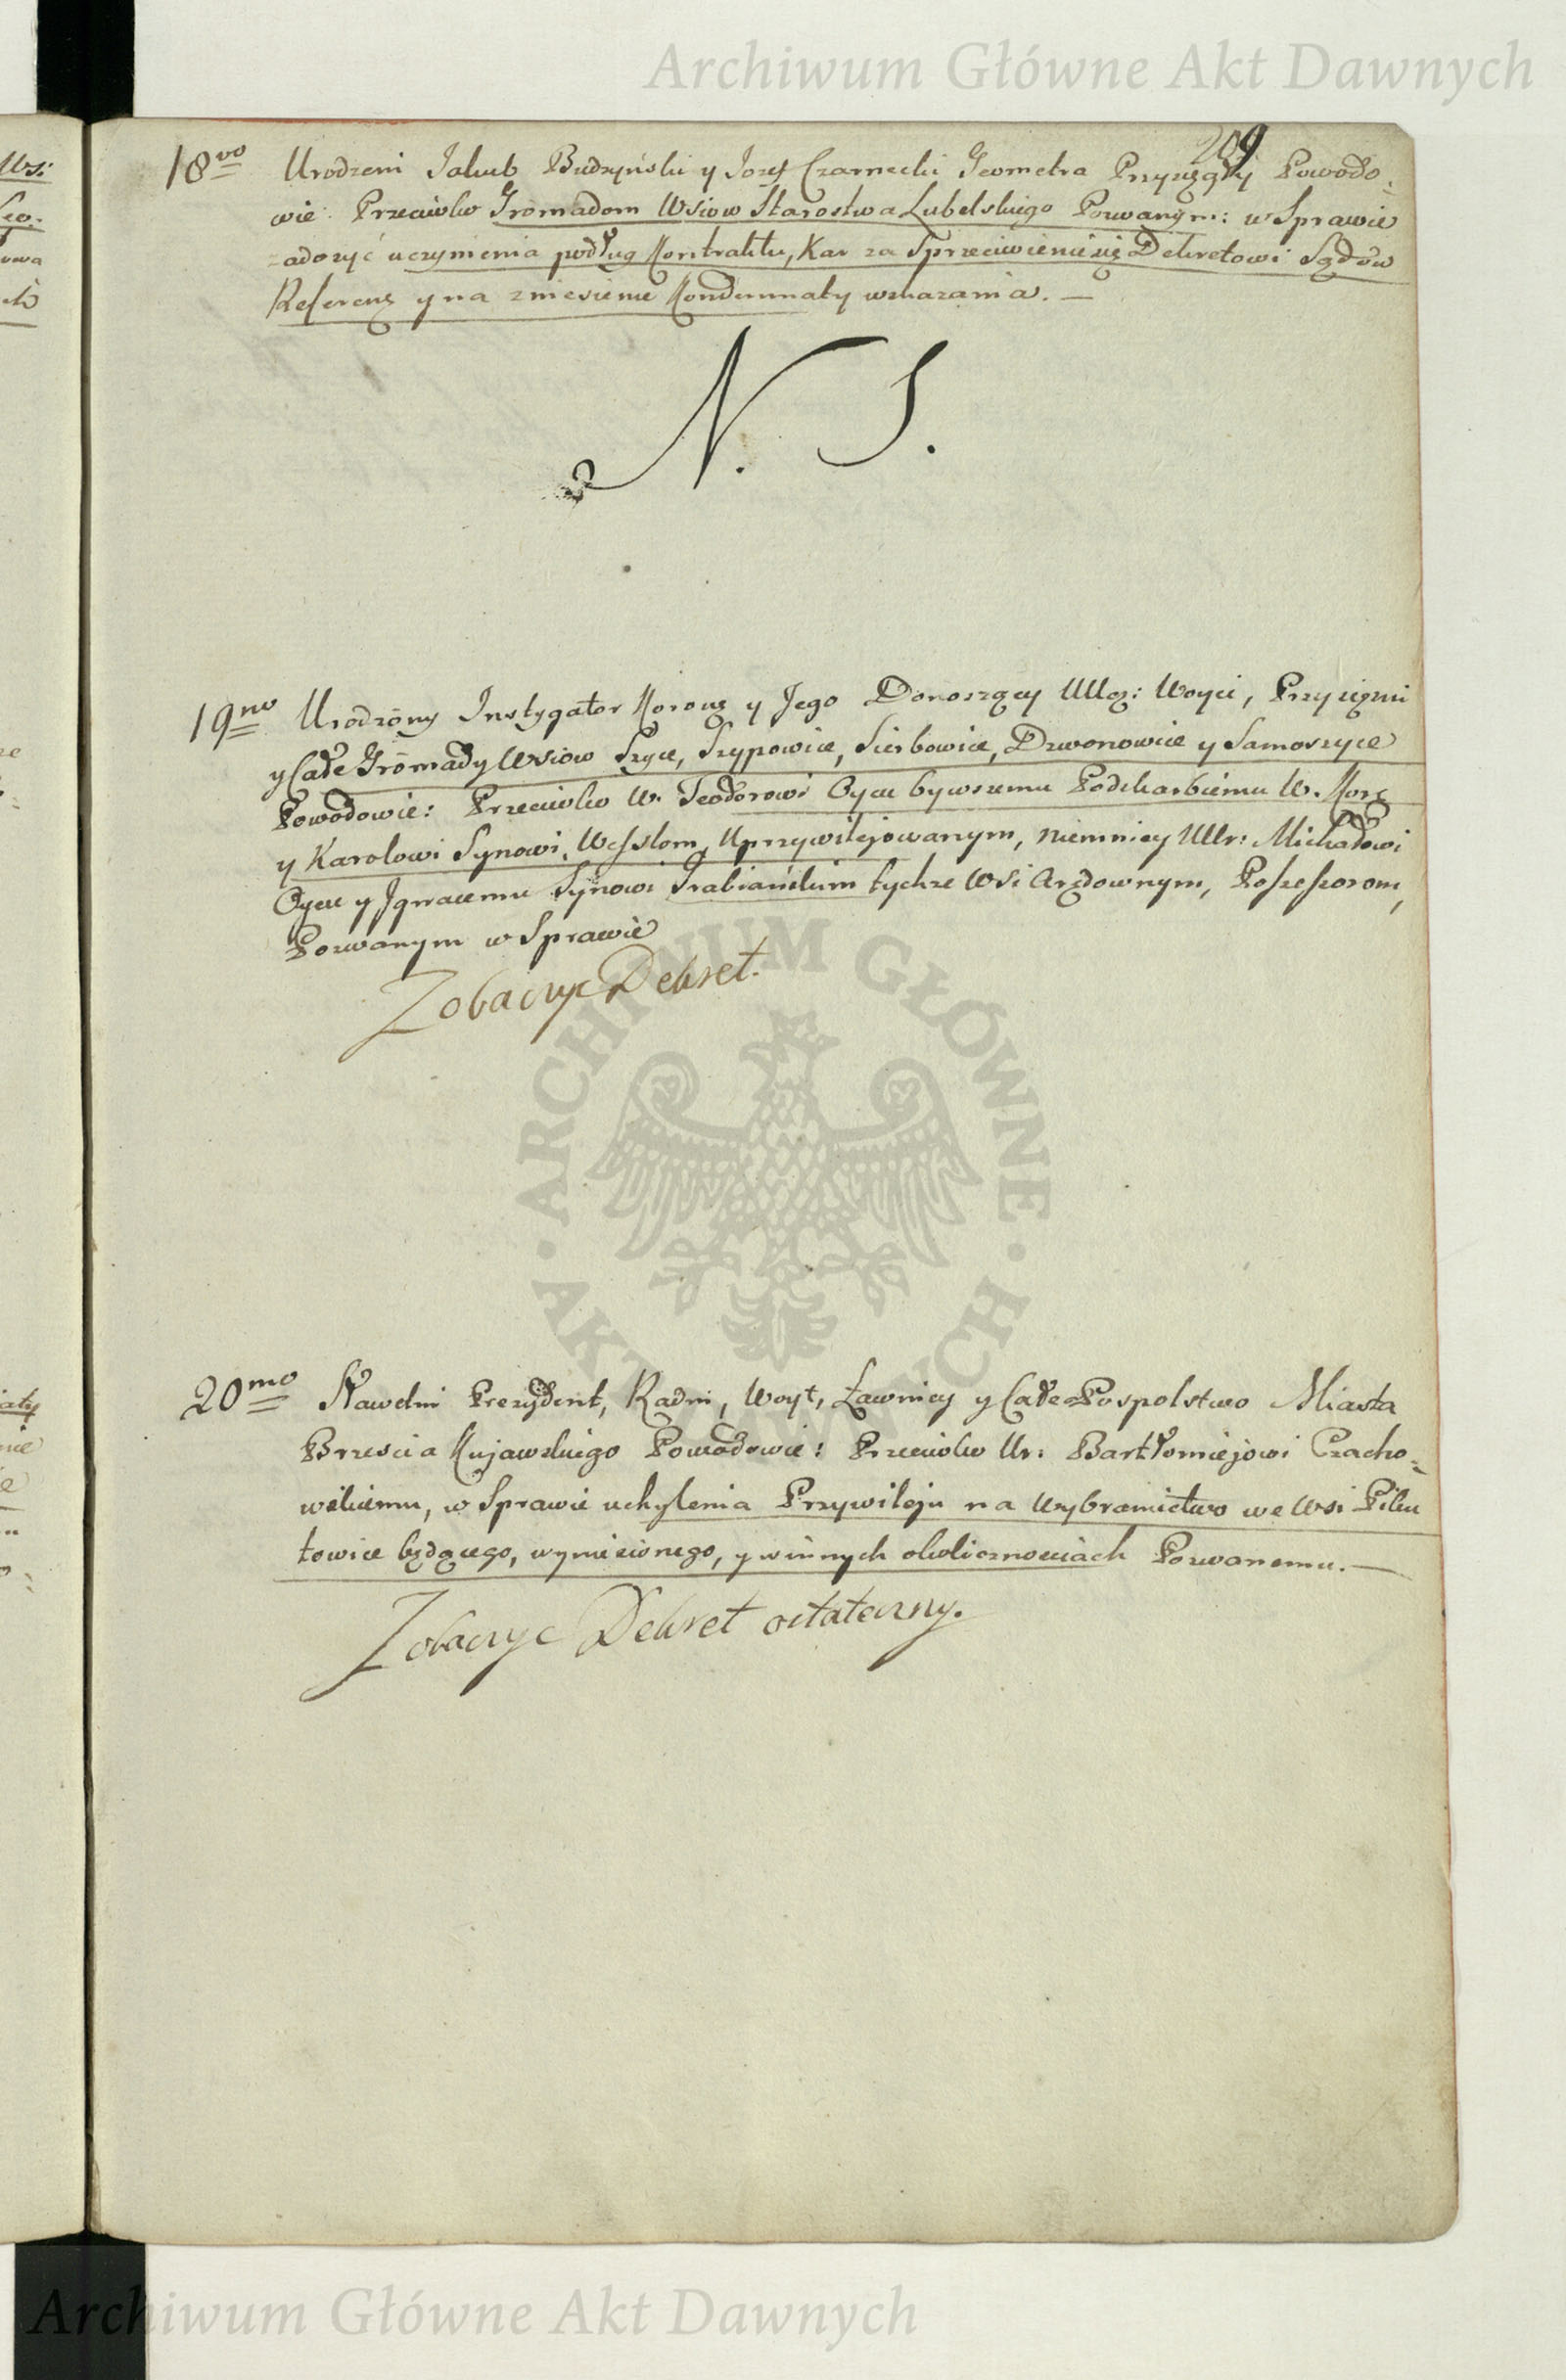 Archiwum Główne Akt Dawnych
209
18vo Urodzeni Jakub Budzyński y Jozef Czarnecki Geometra Przysięgły Powodo-
wie: Przeciwko Gromadom Wsiow Starostwa Lubelskiego Pozwanym: w Sprawie
zadosyć uczynienia podług Kontraktu, Kar za Sprzeciwienie się Dekretowi Sądów
Referens y na zniesienie Kondemnaty wskazania. —
N. S.
19no Urodzony Instygator Koronę y Jego Donoszący Woyci, Przysiężni
y Całe Gromady Wsiow Szyce, Szypowice, Sierbowice, Dzwonowice y Samoszyce
Powodowie: Przeciwko W. Teodorowi Oycu bywszemu Podskarbiemu W. Korę
y Karolowi Synowi, Wesslom, Uprzywilejowanym, niemniey Michałowi
Oycu y Jgnacemu Synowi Grabiańskim tychże Wsi Arędownym, Possessorom,
Pozwanym w Sprawie
Zobaczyc Dekret.
20mo Sławetni Prezydent, Radni, Woyt, Ławnicy y Całe Pospolstwo Miasta
Brzescia Kujawskiego Powodowie: Przeciwko Ur: Bartłomiejowi Czacho-
wskiemu, w Sprawie uchylenia Przywileju na Wybranictwo we Wsi Piku
towice będącego, wyniesionego, y w innych okolicznosciach Pozwanemu. —
Zobaczyc Dekret ostateczny.
ARCHIWUM GŁÓWNE AKT DAWNYCH
Archiwum Główne Akt Dawnych